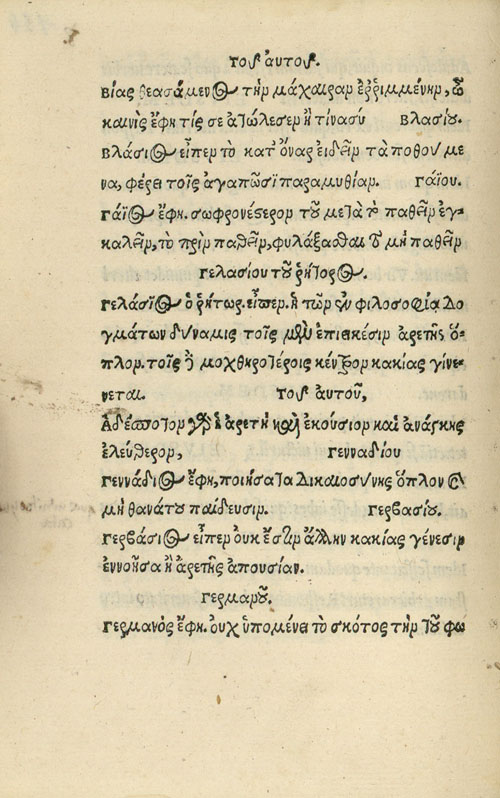 τοῦ ἀυτοῦ.
βίας θεασάμενος τὴν μάχαιραν ἐῤῥιμμένην, ὦ
καινὶς ἔφη τίς σε ἀπώλεσεν ἢ τίνα σύ βλασίου.
βλάσιος εἶπεν τὸ κατ' ὄναρ ἐιδεῖν τὰ ποθούμε
να, φέρει τοῖς ἀγαπῶσι παραμυθίαν. γαΐου.
γάϊος ἔφη. σωφρονέστερον τοῦ μετὰ τὸ παθεῖν ἐγ-
καλεῖν, τὸ πρὶν παθεῖν, φυλάξασθαι τοῦ μὴ παθεῖν
γελασίου τοῦ ῥήτορος.
γελάσιος ὁ ῥήτωρ. εἶπεν. ἡ τῶν ἐν φιλοσοφίᾳ δο
γμάτων δύναμις τοῖς μὲν ἐπιεικέσιν ἀρετῆς ὅ-
πλον. τοῖς δὲ μοχθηροτέροις κέντρον κακίας γίνε-
νεται. τοῦ ἀυτοῦ,
Ἀδέσποτον ἡ ἀρετὴ καὶ ἑκούσιον καὶ ἀνάγκης
ἐλεύθερον, γενναδίου
γεννάδιος ἔφη, ποιῆσαι δικαιοσύνης ὅπλον
μὴ θανάτου παίδευσιν. γερβασίου.
γερβάσιος εἶπεν οὐκ ἔστιν ἄλλην κακίας γένεσιν
ἐννοῆσαι ἢ ἀρετῆς απουσίαν.
γερμανοῦ.
γερμανὸς ἔφη. ὀυχ ὑπομένει τὸ σκότος τὴν τοῦ φω